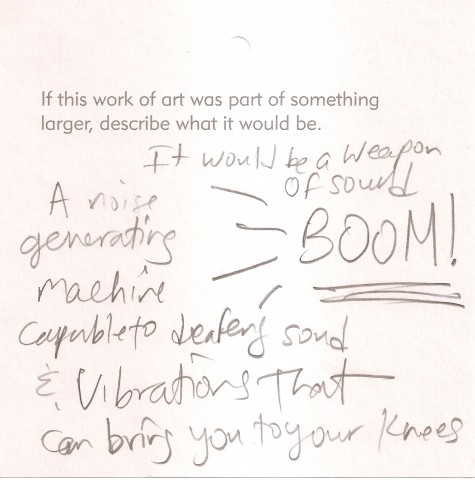 If this work of art was part of something
larger, describe what it would be.
It would be a weapon
of sound
BOOM!
A noise
generating
machine
capable to deafeng sound
& Vibrations That
can bring you to your knees